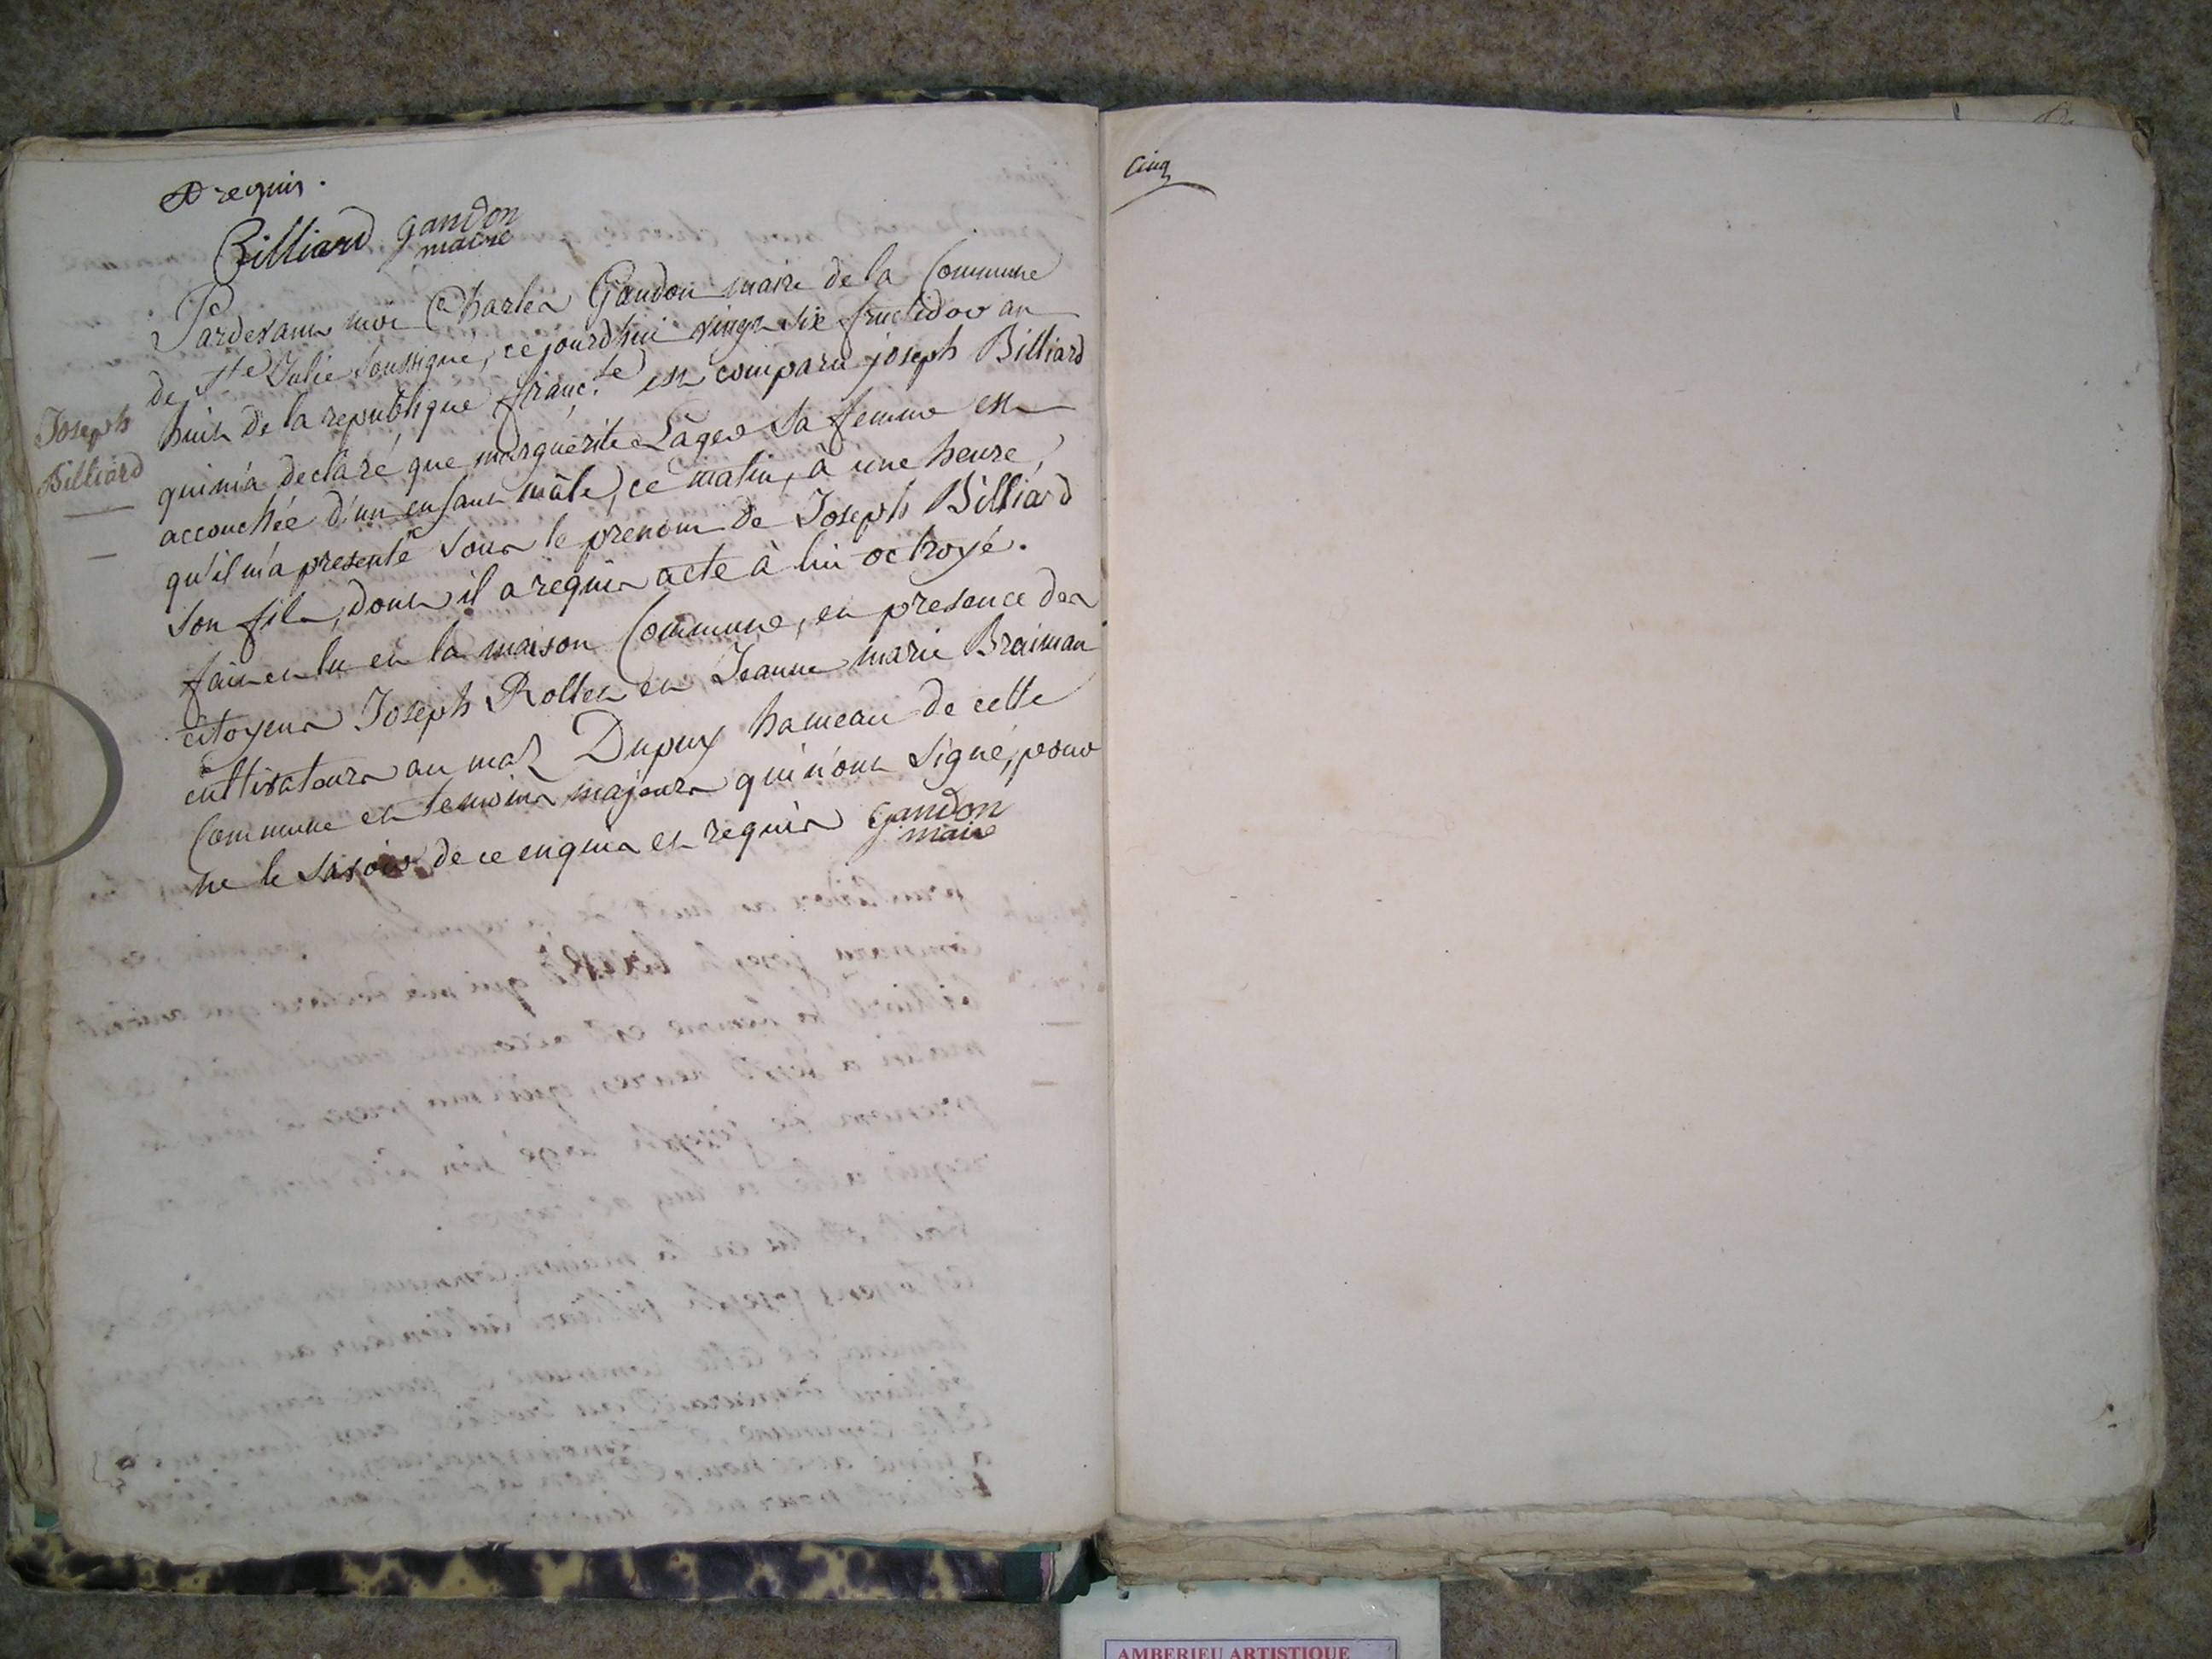 et requis.
Billiard gandon
maire
Pardevant moi Charles Gandon maire de la Commune
de Ste Julie soussigné, ce jourdhui vingt six fructidor an
huit de la republique franç.se est comparu joseph Billiard
Joseph
Billiard
qui m'a declaré que marguerite Lager sa femme est
accouchée d'un enfant mâle, ce matin, à une heure,
qu'il m'a presenté sous le prenom de Joseph Billiard
son fils, dont il a requis acte à lui octroyé.
fait et lu en la maison Commune, en presence des
citoyens Joseph Rollet et Jeanne marie Braiman
cultivateurs au mas Dupuy hameau de cette
Commune et temoins majeurs qui n'ont signé, pour
ne le savoir de ce enquis et requis gandon
maire
Cinq
AMBERIEU ARTISTIQUE